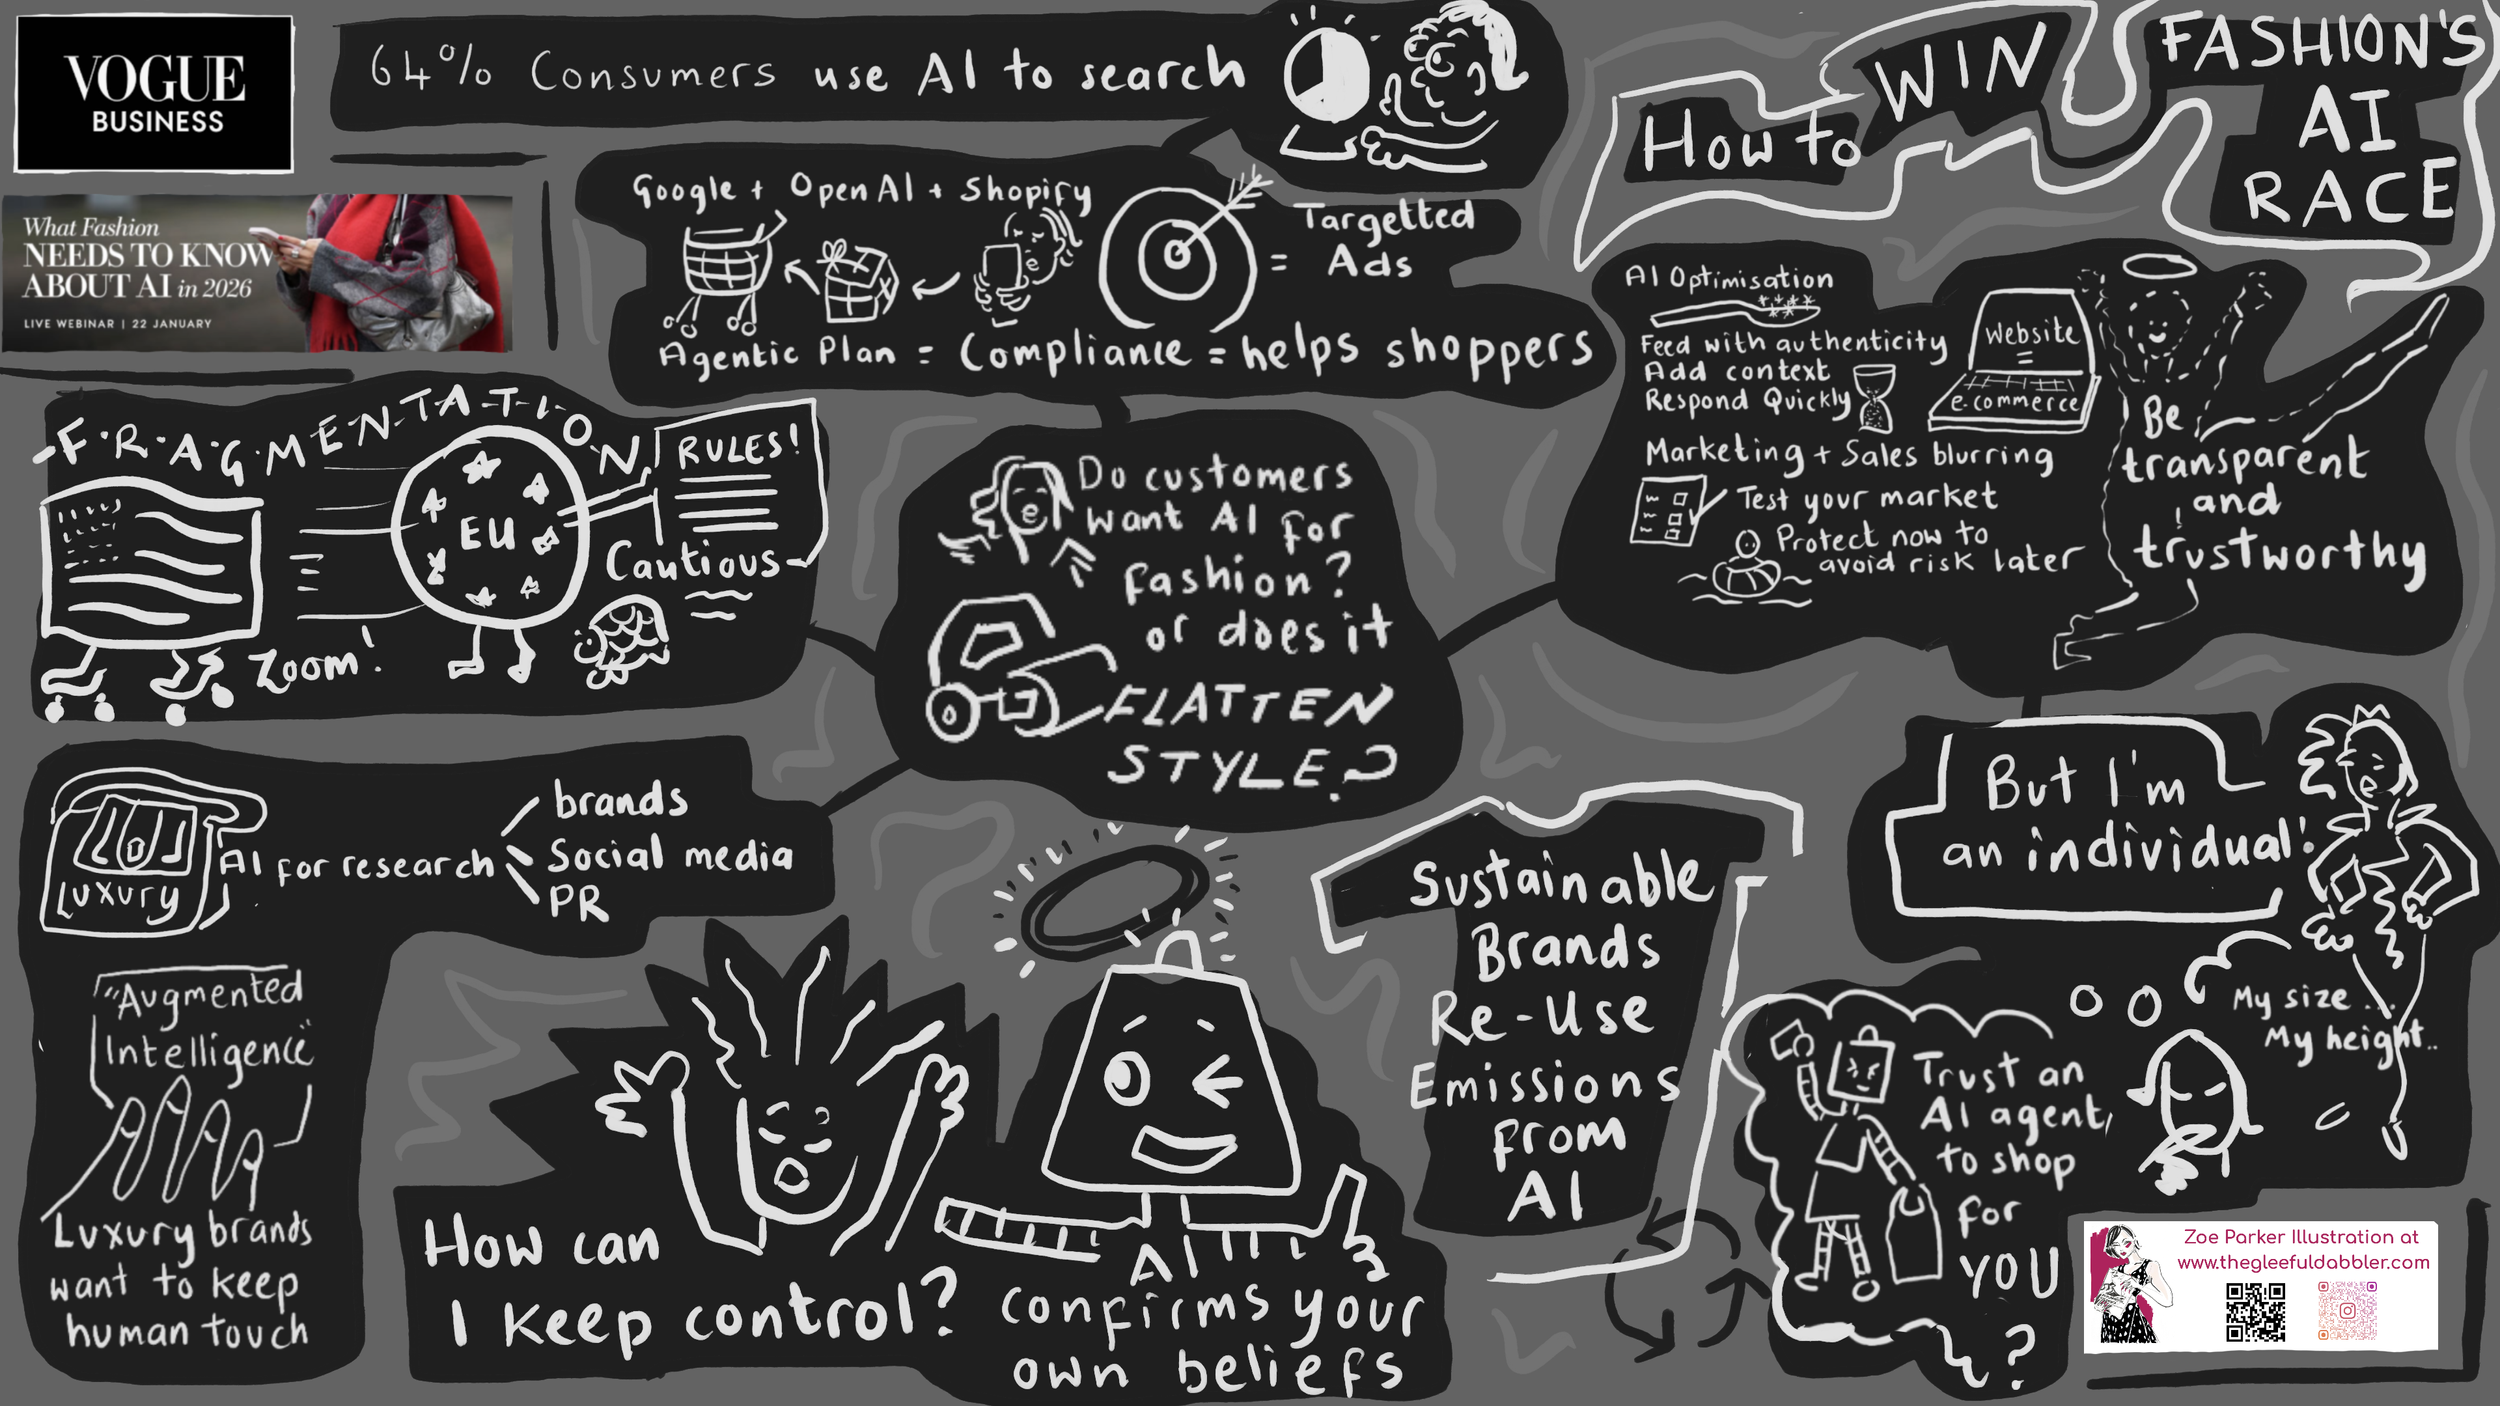 VOGUE
BUSINESS
64% Consumers use AI to search
How to WIN
FASHION'S
AI
RACE
What Fashion
NEEDS TO KNOW
ABOUT AI in 2026
LIVE WEBINAR | 22 JANUARY
Google + OpenAI + Shopify
= Targetted
Ads
Agentic Plan = Compliance = helps shoppers
AI Optimisation
Feed with authenticity
Add context
Respond Quickly
Website
=
e-commerce
Marketing + Sales blurring
Test your market
Protect now to
avoid risk later
Be
transparent
and
trustworthy
-F-R-A-G-M-E-N-T-A-T-I-O-N
EU
RULES!
Cautious
Zoom!
Do customers
want AI for
fashion?
or does it
FLATTEN
STYLE?
Luxury
AI for research
brands
Social media
PR
"Augmented
Intelligence"
Luxury brands
want to keep
human touch
How can
I keep control?
AI
confirms your
own beliefs
Sustainable
Brands
Re-Use
Emissions
from
AI
But I'm
an individual!
My size ..
My height..
Trust an
AI agent
to shop
for
YOU
?
Zoe Parker Illustration at
www.thegleefuldabbler.com